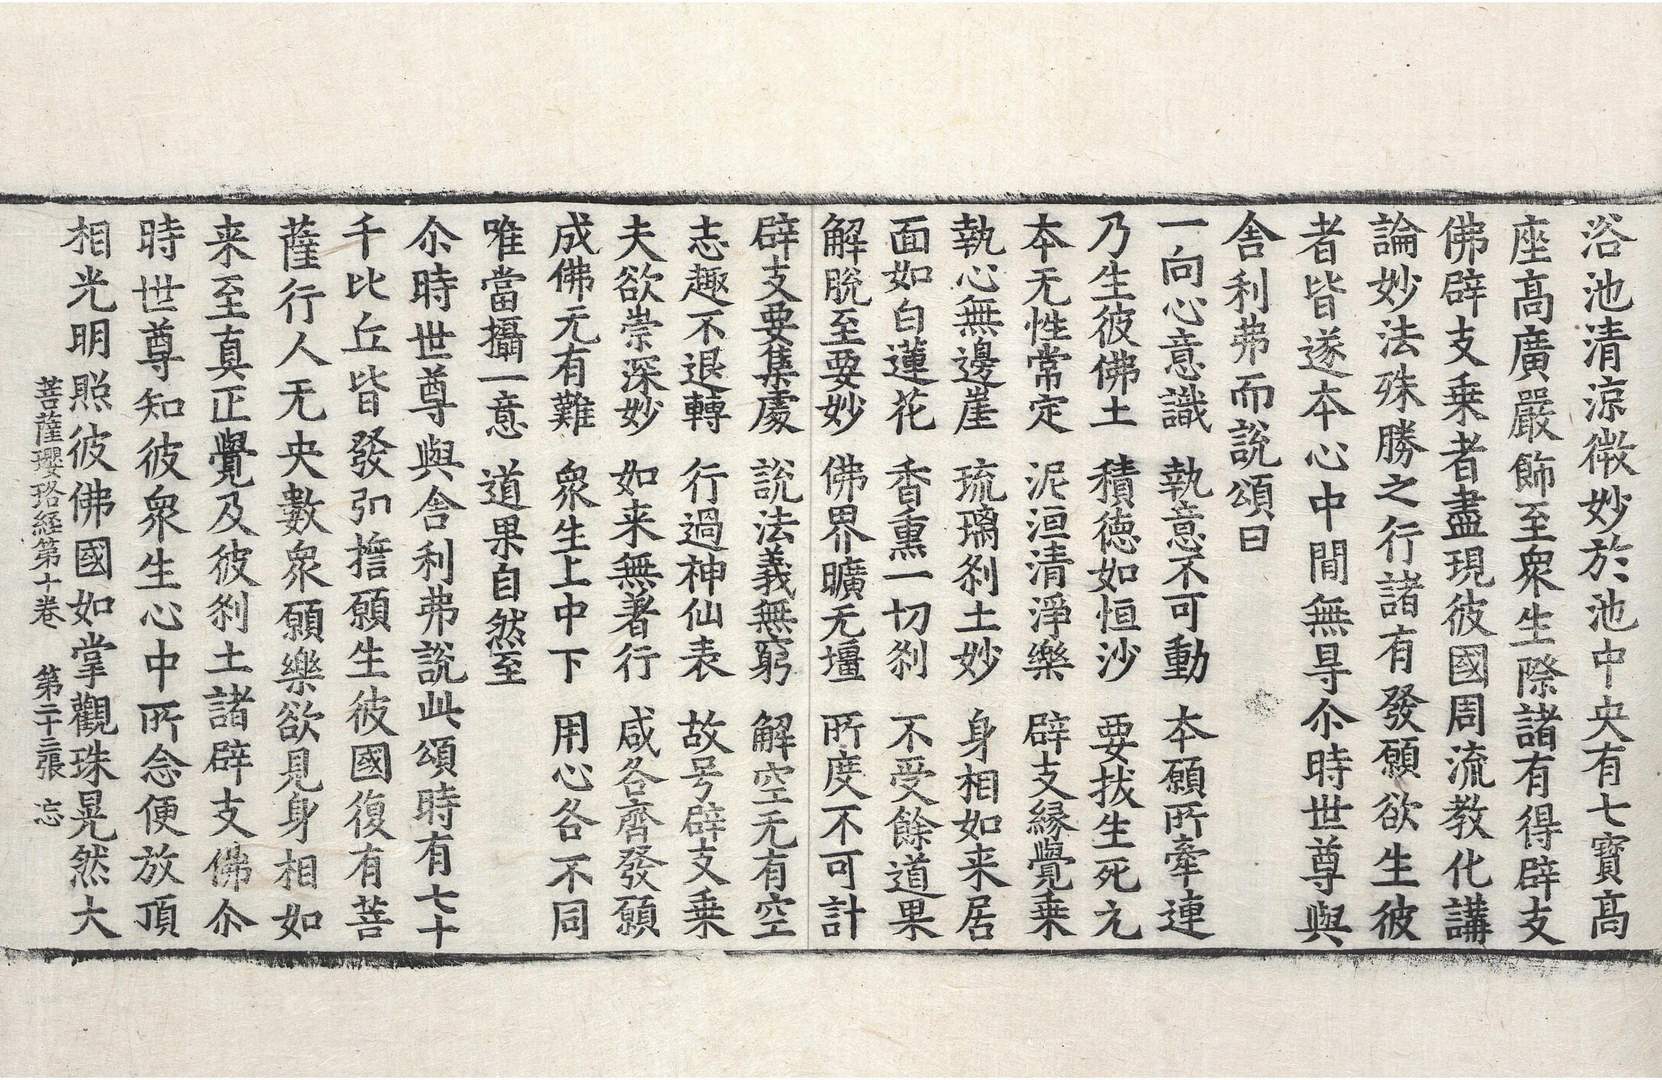 浴池清涼微妙於池中央有七寶高
座高廣嚴飾至衆生際諸有得辟支
佛辟支乗者盡現彼國周流教化講
論妙法殊勝之行諸有發願欲生彼
者皆遂本心中間無㝵尒時世尊與
舍利弗而說頌曰
一向心意識　執意不可動　本願所牽連
乃生彼佛土　積德如恒沙　要拔生死元
本无性常定　泥洹清淨樂　辟支縁覺乗
執心無邊崖　琉璃刹土妙　身相如来居
面如白蓮花　香熏一切刹　不受餘道果
解脫至要妙　佛界曠无壃　所度不可計
辟支要集處　說法義無窮　解空无有空
志趣不退轉　行過神仙表　故号辟支乗
夫欲崇深妙　如来無著行　咸各齊發願
成佛无有難　衆生上中下　用心各不同
唯當攝一意　道果自然至
尒時世尊與舍利弗說此頌時有七十
千比丘皆發弘擔願生彼國復有菩
薩行人无央數衆願樂欲見身相如
来至真正覺及彼刹土諸辟支佛尒
時世尊知彼衆生心中所念便放頂
相光明照彼佛國如掌觀珠晃然大
菩薩瓔珞経第十卷　第二十三張　忘